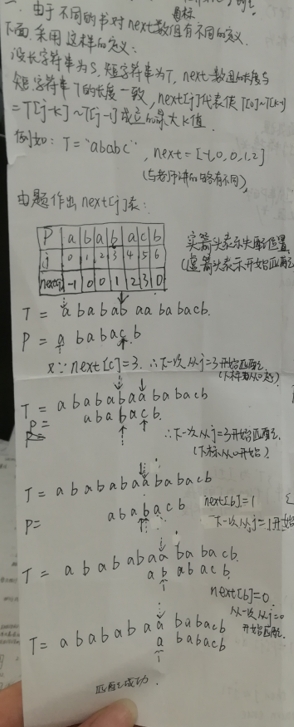 一. 由于不同的书对next数组有不同的定义.
下面采用这样的定义:
设长字符串为S, 短字符串为T, next数组的长度与
短字符串T的长度一致, next[j]代表使T[0]~T[k-1]
=T[j-k]~T[j-1]成立的最大k值.
例如: T="ababc", next=[-1,0,0,1,2]
(与老师讲的略有不同).
由题作出next[j]表:
P a b a b a c b
j 0 1 2 3 4 5 6
next[j] -1 0 0 1 2 3 0
实箭头表示失配位置
(虚箭头表示开始匹配
T = a b a b a b a a b a b a c b.
P = a b a b a c b
∵ next[c]=3. ∴下一次从j=3开始匹配
T = a b a b a b a a b a b a c b
P = a b a b a c b
∴下一次从j=3开始匹配.
(下标从0开始)
T = a b a b a b a a b a b a c b
P= a b a b a c b
next[b]=1
下一次从j=1开始
T = a b a b a b a a b a b a c b.
a b a b a c b.
next[b]=0.
从一次从j=0
开始匹配.
T = a b a b a b a a b a b a c b
a b a b a c b
匹配成功.